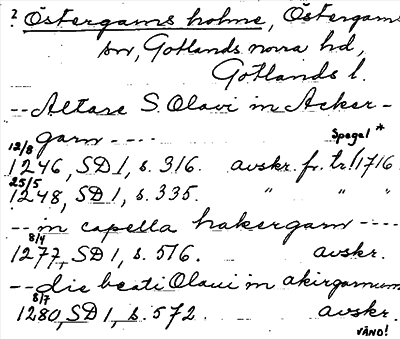 ? Östergams holme, Östergams
sn, Gotlands norra hd,
Gotlands l.
-- Altare S. Olavi in Acker-
garn ----
Spegel *
12/8
1246, SD 1, s. 316. avskr. fr. tr. 1716
25/5
1248, SD 1, s. 335. " " "
-- in capella hakergarn ----
8/4
1277, SD 1, s. 516. avskr.
-- die beati Olaui in akirgarnum
8/7
1280, SD 1, s. 572. avskr.
VÄND!